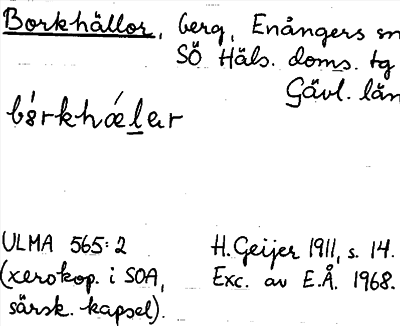 Borkhällor, berg, Enångers sn
SÖ Häls. doms. tg
Gävl. län
ULMA 565:2
H. Geijer 1911, s. 14.
(xerokop. i SOA,
Exc. av E.Å. 1968.
särsk. kapsel).